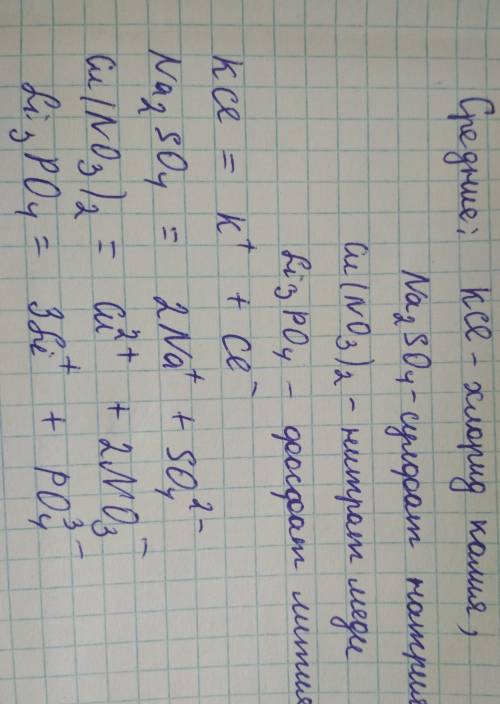 Средние: KCl - хлорид калия,
Na2SO4 - сульфат натрия
Cu(NO3)2 - нитрат меди
Li3PO4 - фосфат лития
KCl = K+ + Cl-
Na2SO4 = 2Na+ + SO4 2-
Cu(NO3)2 = Cu2+ + 2NO3-
Li3PO4 = 3Li+ + PO4 3-